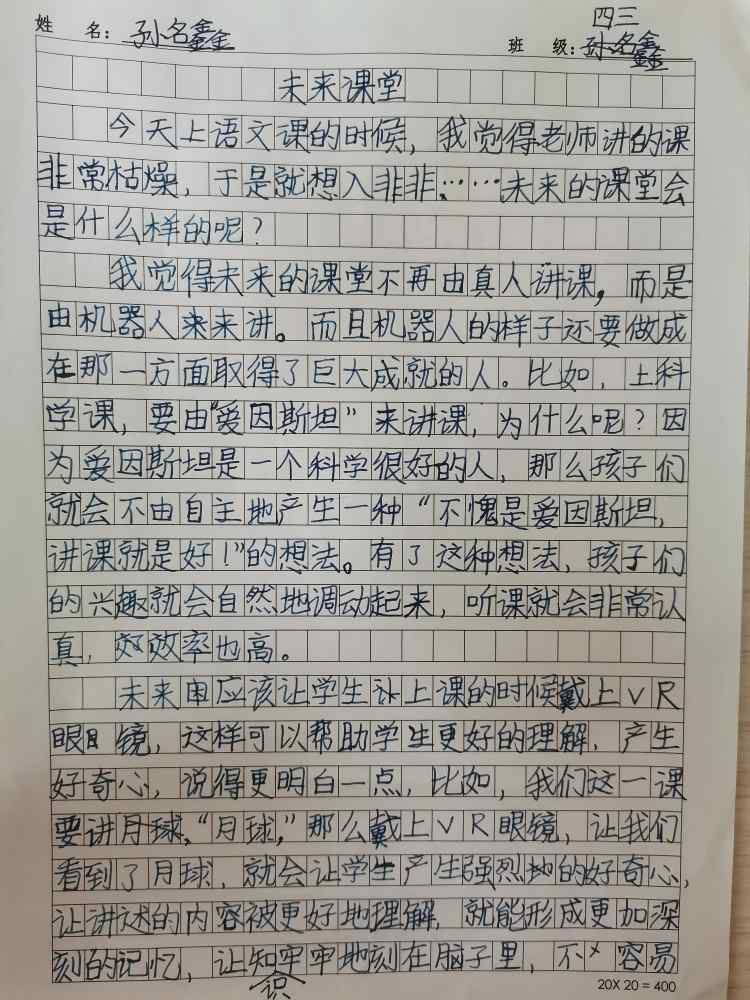 姓 名：孙名鑫
四三
班 级：孙名鑫
未来课堂
今天上语文课的时候，我觉得老师讲的课
非常枯燥，于是就想入非非……未来的课堂会
是什么样的呢？
我觉得未来的课堂不再由真人讲课，而是
由机器人来来讲。而且机器人的样子还要做成
在那一方面取得了巨大成就的人。比如，上科
学课，要由“爱因斯坦”来讲课，为什么呢？因
为爱因斯坦是一个科学很好的人，那么孩子们
就会不由自主地产生一种“不愧是爱因斯坦，
讲课就是好！”的想法。有了这种想法，孩子们
的兴趣就会自然地调动起来，听课就会非常认
真，效率也高。
未来应该让学生上课的时候戴上VR
眼镜，这样可以帮助学生更好的理解，产生
好奇心，说得更明白一点，比如，我们这一课
要讲月球，“月球，”那么戴上VR眼镜，让我们
看到了月球，就会让学生产生强烈地的好奇心，
让讲述的内容被更好地理解，就能形成更加深
刻的记忆，让知识牢牢地刻在脑子里，不容易
20X20=400